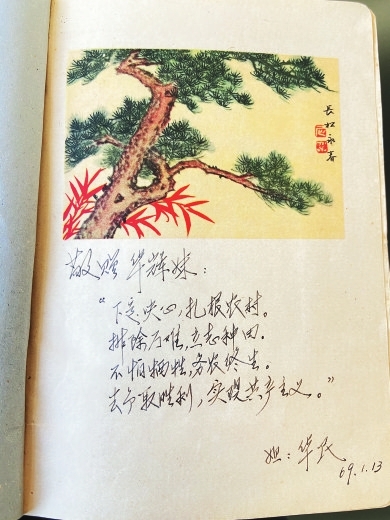 长松永春
敬赠华辉妹：
“下定决心，扎根农村。
排除万难，立志种田。
不怕牺牲，务农终生。
去争取胜利，实现共产主义。”
姐：华民
69.1.13